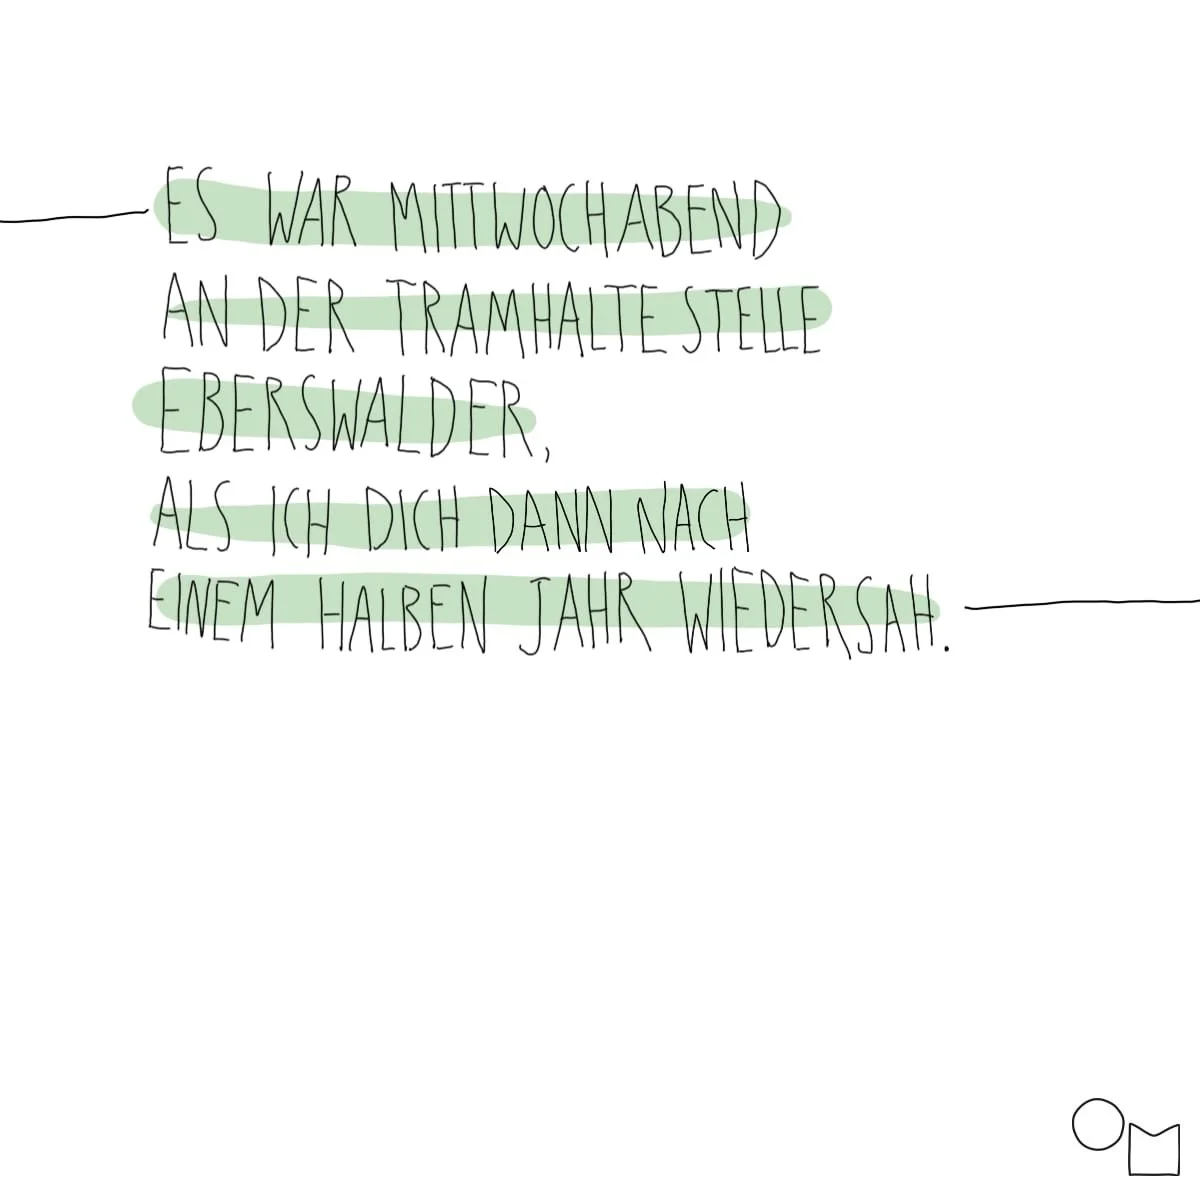 ES WAR MITTWOCHABEND
AN DER TRAMHALTESTELLE
EBERSWALDER,
ALS ICH DICH DANN NACH
EINEM HALBEN JAHR WIEDERSAH.